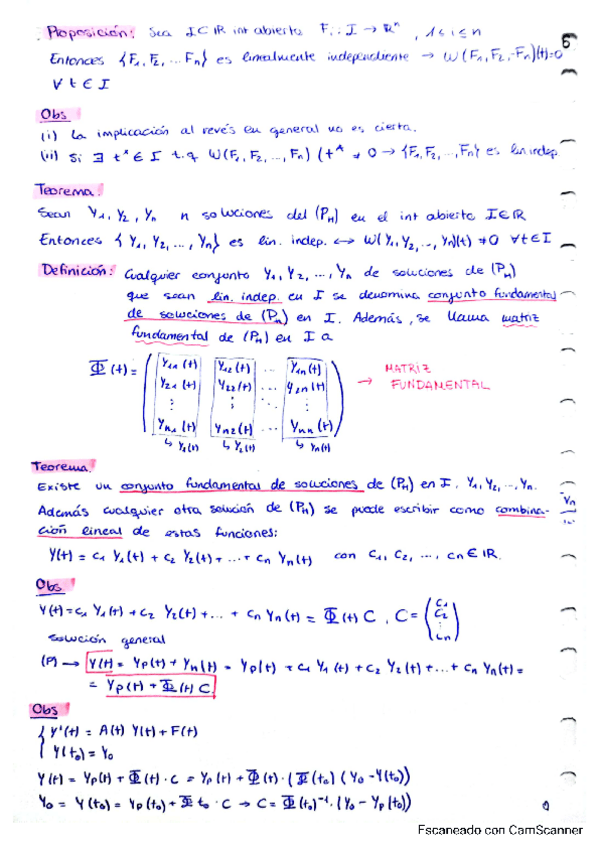 Proposición: Sea I⊂ℝ int abierto Fᵢ: I → ℝⁿ , 1 ≤ i ≤ n
Entonces {F₁, F₂, ... Fₙ} es linealmente independiente → W(F₁, F₂, ·Fₙ)(t)=0
∀ t ∈ I
5
Obs
(i) La implicación al revés en general no es cierta.
(ii) Si ∃ t* ∈ I t.q W(F₁, F₂, ..., Fₙ) (t* ≠ 0 → {F₁, F₂, ..., Fₙ} es lin indep.
Teorema:
Sean Y₁, Y₂, Yₙ n soluciones del (P_H) en el int abierto I⊂ℝ
Entonces { Y₁, Y₂, ..., Yₙ} es lin. indep. ↔ W(Y₁, Y₂, .., Yₙ)(t) ≠0 ∀t∈I
Definición: Cualquier conjunto Y₁, Y₂, ..., Yₙ de soluciones de (P_H)
que sean lin. indep. en I se denomina conjunto fundamental
de soluciones de (P_H) en I. Además, se llama matriz
fundamental de (P_H) en I a
Φ(t) = ( Y₁₁(t) Y₁₂(t) ... Y₁ₙ(t) )
Y₂₁(t) Y₂₂(t) ... Y₂ₙ(t)
⋮ ⋮ ⋮
Yₙ₁(t) Yₙ₂(t) ... Yₙₙ(t)
↳ Y₁(t) ↳ Y₂(t) ↳ Yₙ(t)
→ MATRIZ
FUNDAMENTAL
Teorema.
Existe un conjunto fundamental de soluciones de (P_H) en I. Y₁, Y₂, .., Yₙ.
Además cualquier otra solución de (P_H) se puede escribir como combina-
ción lineal de estas funciones:
Y(t) = c₁ Y₁(t) + c₂ Y₂(t) + ... + cₙ Yₙ(t) con c₁, c₂, ..., cₙ∈ℝ.
Obs
Y(t) = c₁ Y₁(t) + c₂ Y₂(t) + ... + cₙ Yₙ(t) = Φ(t) C , C = ( c₁ c₂ ⋮ cₙ )
solución general
(P) → Y(t) = Y_p(t) + Y_H(t) = Y_p(t) + c₁ Y₁(t) + c₂ Y₂(t) + ... + cₙ Yₙ(t) =
= Y_p(t) + Φ(t) C
Obs
{ Y'(t) = A(t) Y(t) + F(t)
Y(t₀) = Y₀
Y(t) = Y_p(t) + Φ(t) · C = Y_p(t) + Φ(t) · (Φ(t₀) (Y₀ - Y(t₀))
Y₀ = Y(t₀) = Y_p(t₀) + Φ t₀ · C → C = Φ(t₀)⁻¹ · (Y₀ - Y_p(t₀))
Escaneado con CamScanner